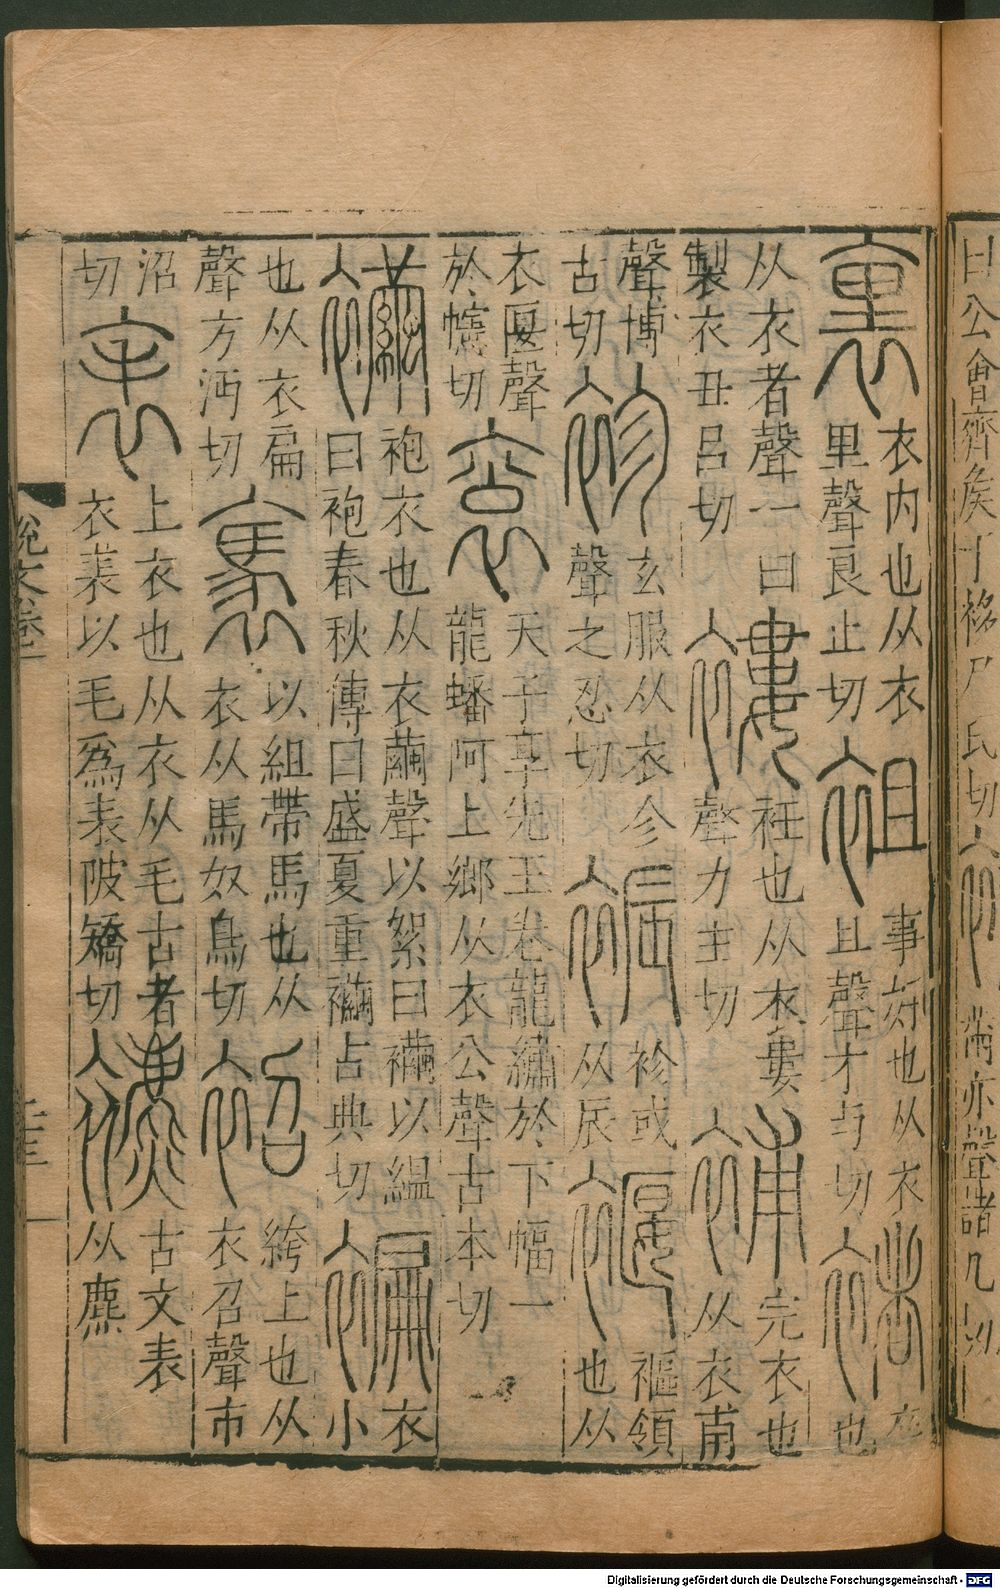 曰公會齊矦于袳尺氏切襧黹亦聲諸几切
裏衣内也从衣里聲良止切袓事好也从衣且聲才与切褚卒也
从衣者聲一曰製衣丑呂切褸衽也从衣婁聲力主切補完衣也从衣甫
聲博古切袗玄服从衣㐱聲之忍切裖袗或从辰褗䙔領也从
衣匽聲於幰切袞天子享先王卷龍繡於下幅一龍蟠阿上鄉从衣公聲古本切
襺袍衣也从衣繭聲以絮曰襺以緼曰袍春秋傳曰盛夏重襺古典切褊衣小
也从衣扁聲方沔切褭以組帶馬也从衣从馬奴鳥切袑絝上也从衣召聲市
沼切表上衣也从衣从毛古者衣裘以毛爲表陂矯切𧝪古文表从麃
說文卷